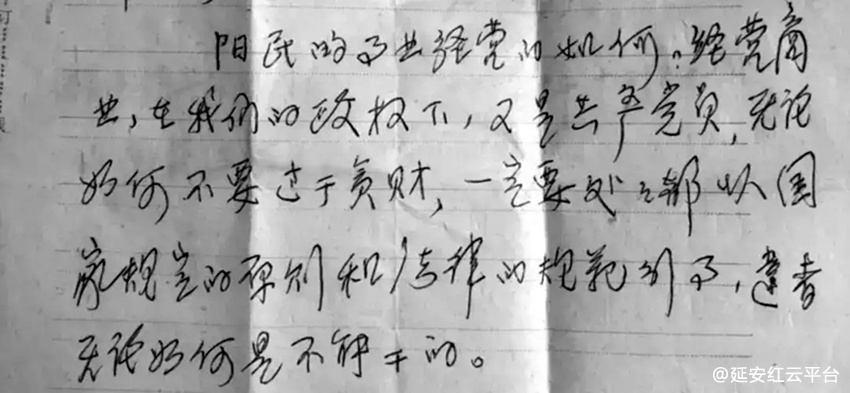 阳民的事业经营的如何？经营商
业，在我们的政权下，又是共产党员，无论
如何不要过于贪财，一定要处处都以国
家规定的原则和法律的规范行事，违者
无论如何是不能干的。
@延安红云平台